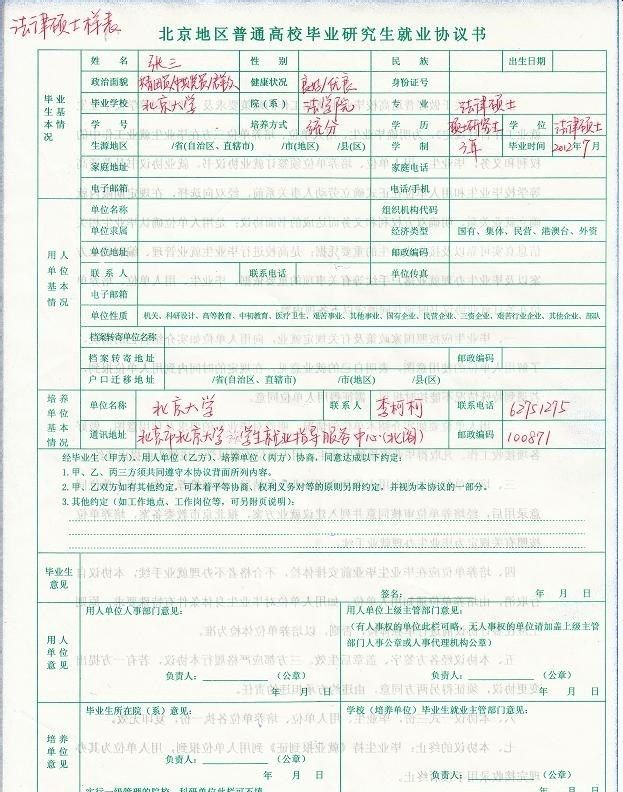 法律硕士样表
北京地区普通高校毕业研究生就业协议书
毕业生基本情况
姓名 张三 性别 民族 出生日期
政治面貌 健康状况 良好/优良 身份证号
毕业学校 北京大学 院(系) 法学院 专业 法律硕士
学号 培养方式 统分 学历 硕士研究生 学位 法律硕士
生源地区 /省(自治区、直辖市) /市(地区) /县(区) 学制 3年 毕业时间 2012年7月
家庭地址 家庭电话
电子邮箱 电话/手机
用人单位基本情况
单位名称 组织机构代码
单位隶属 经济类型 国有、集体、民营、港澳台、外资
单位地址 邮政编码
联系人 联系电话 单位传真
电子邮箱
单位性质 机关、科研设计、高等教育、中初教育、医疗卫生、艰苦事业、其他事业、国有企业、民营企业、三资企业、艰苦行业企业、其他企业、部队
档案转寄单位名称
档案转寄地址 邮政编码
户口迁移地址 /省(自治区、直辖市) /市(地区) /县(区)
培养单位基本情况
单位名称 北京大学 联系人 李柯柯 联系电话 62751275
通讯地址 北京市北京大学学生就业指导服务中心(北阁) 邮政编码 100871
经毕业生(甲方)、用人单位(乙方)、培养单位(丙方)协商,同意达成以下约定:
1. 甲、乙、丙三方须共同遵守本协议背面所列内容。
2. 甲、乙双方如有其他约定,可本着平等协商、权利义务对等的原则另附约定,并视为本协议的一部分。
3. 其他约定(如工作地点、工作岗位等,可另附页说明):
毕业生意见
签名: 年 月 日
用人单位意见
用人单位人事部门意见: 用人单位上级主管部门意见:
(有人事权的单位此栏可略,无人事权的单位请加盖上级主管
部门人事公章或人事代理机构公章)
负责人: (公章) 负责人: (公章)
年 月 日 年 月 日
培养单位意见
毕业生所在院(系)意见: 学校(培养单位)毕业生就业主管部门意见:
负责人: (公章) 负责人: (公章)
年 月 日 年 月 日